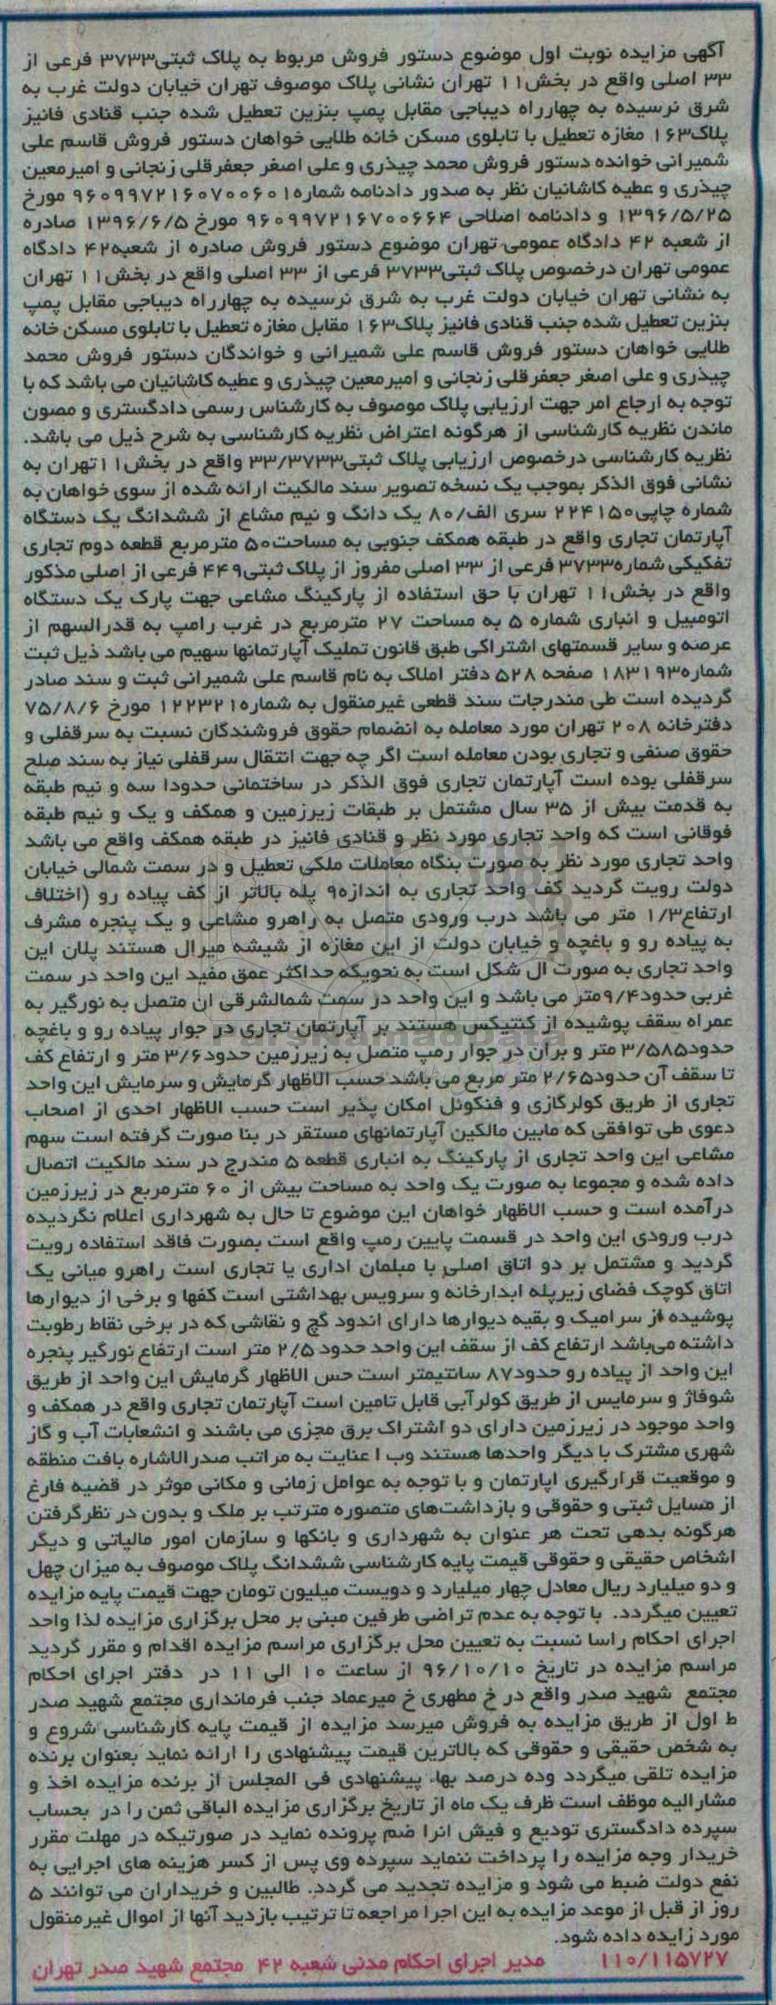 آگهی مزایده نوبت اول موضوع دستور فروش مربوط به پلاک ثبتی۳۷۳۳ فرعی از
۳۳ اصلی واقع در بخش۱۱ تهران نشانی پلاک موصوف تهران خیابان دولت غرب به
شرق نرسیده به چهارراه دیباجی مقابل پمپ بنزین تعطیل شده جنب قنادی فانیز
پلاک۱۶۳ مغازه تعطیل با تابلوی مسکن خانه طلایی خواهان دستور فروش قاسم علی
شمیرانی خوانده دستور فروش محمد چیذری و علی اصغر جعفرقلی زنجانی و امیرمعین
چیذری و عطیه کاشانیان نظر به صدور دادنامه شماره۹۶۰۹۹۷۲۱۶۰۷۰۰۶۰۱ مورخ
۱۳۹۶/۵/۲۵ و دادنامه اصلاحی ۹۶۰۹۹۷۲۱۶۷۰۰۶۶۴ مورخ ۱۳۹۶/۶/۵ صادره
از شعبه ۴۲ دادگاه عمومی تهران موضوع دستور فروش صادره از شعبه۴۲ دادگاه
عمومی تهران درخصوص پلاک ثبتی۳۷۳۳ فرعی از ۳۳ اصلی واقع در بخش۱۱ تهران
به نشانی تهران خیابان دولت غرب به شرق نرسیده به چهارراه دیباجی مقابل پمپ
بنزین تعطیل شده جنب قنادی فانیز پلاک۱۶۳ مقابل مغازه تعطیل با تابلوی مسکن خانه
طلایی خواهان دستور فروش قاسم علی شمیرانی و خواندگان دستور فروش محمد
چیذری و علی اصغر جعفرقلی زنجانی و امیرمعین چیذری و عطیه کاشانیان می باشد که با
توجه به ارجاع امر جهت ارزیابی پلاک موصوف به کارشناس رسمی دادگستری و مصون
ماندن نظریه کارشناسی از هرگونه اعتراض نظریه کارشناسی به شرح ذیل می باشد.
نظریه کارشناسی درخصوص ارزیابی پلاک ثبتی۳۳/۳۷۳۳ واقع در بخش۱۱تهران به
نشانی فوق الذکر بموجب یک نسخه تصویر سند مالکیت ارائه شده از سوی خواهان به
شماره چاپی۲۲۴۱۵۰ سری الف/۸۰ یک دانگ و نیم مشاع از ششدانگ یک دستگاه
آپارتمان تجاری واقع در طبقه همکف جنوبی به مساحت۵۰ مترمربع قطعه دوم تجاری
تفکیکی شماره۳۷۳۳ فرعی از ۳۳ اصلی مفروز از پلاک ثبتی۴۴۹ فرعی از اصلی مذکور
واقع در بخش۱۱ تهران با حق استفاده از پارکینگ مشاعی جهت پارک یک دستگاه
اتومبیل و انباری شماره ۵ به مساحت ۲۷ مترمربع در غرب رامپ به قدرالسهم از
عرصه و سایر قسمتهای اشتراکی طبق قانون تملیک آپارتمانها سهیم می باشد ذیل ثبت
شماره۱۸۳۱۹۳ صفحه ۵۲۸ دفتر املاک به نام قاسم علی شمیرانی ثبت و سند صادر
گردیده است طی مندرجات سند قطعی غیرمنقول به شماره۱۲۲۳۲۱ مورخ ۷۵/۸/۶
دفترخانه ۲۰۸ تهران مورد معامله به انضمام حقوق فروشندگان نسبت به سرقفلی و
حقوق صنفی و تجاری بودن معامله است اگر چه جهت انتقال سرقفلی نیاز به سند صلح
سرقفلی بوده است آپارتمان تجاری فوق الذکر در ساختمانی حدودا سه و نیم طبقه
به قدمت بیش از ۳۵ سال مشتمل بر طبقات زیرزمین و همکف و یک و نیم طبقه
فوقانی است که واحد تجاری مورد نظر و قنادی فانیز در طبقه همکف واقع می باشد
واحد تجاری مورد نظر به صورت بنگاه معاملات ملکی تعطیل و در سمت شمالی خیابان
دولت رویت گردید کف واحد تجاری به اندازه۹ پله بالاتر از کف پیاده رو (اختلاف
ارتفاع۱/۳ متر می باشد درب ورودی متصل به راهرو مشاعی و یک پنجره مشرف
به پیاده رو و باغچه و خیابان دولت از این مغازه از شیشه میرال هستند پلان این
واحد تجاری به صورت ال شکل است به نحویکه حداکثر عمق مفید این واحد در سمت
غربی حدود۹/۴متر می باشد و این واحد در سمت شمالشرقی ان متصل به نورگیر به
عمراه سقف پوشیده از کنتیکس هستند بر آپارتمان تجاری در جوار پیاده رو و باغچه
حدود۳/۵۸۵ متر و برآن در جوار رمپ متصل به زیرزمین حدود۳/۶ متر و ارتفاع کف
تا سقف آن حدود۲/۶۵ متر مربع می باشد حسب الاظهار گرمایش و سرمایش این واحد
تجاری از طریق کولرگازی و فنکوئل امکان پذیر است حسب الاظهار احدی از اصحاب
دعوی طی توافقی که مابین مالکین آپارتمانهای مستقر در بنا صورت گرفته است سهم
مشاعی این واحد تجاری از پارکینگ به انباری قطعه ۵ مندرج در سند مالکیت اتصال
داده شده و مجموعا به صورت یک واحد به مساحت بیش از ۶۰ مترمربع در زیرزمین
درآمده است و حسب الاظهار خواهان این موضوع تا حال به شهرداری اعلام نگردیده
درب ورودی این واحد در قسمت پایین رمپ واقع است بصورت فاقد استفاده رویت
گردید و مشتمل بر دو اتاق اصلی با مبلمان اداری یا تجاری است راهرو میانی یک
اتاق کوچک فضای زیرپله ابدارخانه و سرویس بهداشتی است کفها و برخی از دیوارها
پوشیده از سرامیک و بقیه دیوارها دارای اندود گچ و نقاشی که در برخی نقاط رطوبت
داشته می‌باشد ارتفاع کف از سقف این واحد حدود ۲/۵ متر است ارتفاع نورگیر پنجره
این واحد از پیاده رو حدود۸۷ سانتیمتر است حس الاظهار گرمایش این واحد از طریق
شوفاژ و سرمایس از طریق کولرآبی قابل تامین است آپارتمان تجاری واقع در همکف و
واحد موجود در زیرزمین دارای دو اشتراک برق مجزی می باشند و انشعابات آب و گاز
شهری مشترک با دیگر واحدها هستند وب ا عنایت به مراتب صدرالاشاره بافت منطقه
و موقعیت قرارگیری اپارتمان و با توجه به عوامل زمانی و مکانی موثر در قضیه فارغ
از مسایل ثبتی و حقوقی و بازداشت‌های متصوره مترتب بر ملک و بدون در نظرگرفتن
هرگونه بدهی تحت هر عنوان به شهرداری و بانکها و سازمان امور مالیاتی و دیگر
اشخاص حقیقی و حقوقی قیمت پایه کارشناسی ششدانگ پلاک موصوف به میزان چهل
و دو میلیارد ریال معادل چهار میلیارد و دویست میلیون تومان جهت قیمت پایه مزایده
تعیین میگردد. با توجه به عدم تراضی طرفین مبنی بر محل برگزاری مزایده لذا واحد
اجرای احکام راسا نسبت به تعیین محل برگزاری مراسم مزایده اقدام و مقرر گردید
مراسم مزایده در تاریخ ۹۶/۱۰/۱۰ از ساعت ۱۰ الی ۱۱ در دفتر اجرای احکام
مجتمع شهید صدر واقع در خ مطهری خ میرعماد جنب فرمانداری مجتمع شهید صدر
ط اول از طریق مزایده به فروش میرسد مزایده از قیمت پایه کارشناسی شروع و
به شخص حقیقی و حقوقی که بالاترین قیمت پیشنهادی را ارائه نماید بعنوان برنده
مزایده تلقی میگردد وده درصد بهاء پیشنهادی فی المجلس از برنده مزایده اخذ و
مشارالیه موظف است ظرف یک ماه از تاریخ برگزاری مزایده الباقی ثمن را در بحساب
سپرده دادگستری تودیع و فیش انرا ضم پرونده نماید در صورتیکه در مهلت مقرر
خریدار وجه مزایده را پرداخت ننماید سپرده وی پس از کسر هزینه های اجرایی به
نفع دولت ضبط می شود و مزایده تجدید می گردد. طالبین و خریداران می توانند ۵
روز از قبل از موعد مزایده به این اجرا مراجعه تا ترتیب بازدید آنها از اموال غیرمنقول
مورد زایده داده شود.
۱۱۰/۱۱۵۷۲۷ مدیر اجرای احکام مدنی شعبه ۴۲ مجتمع شهید صدر تهران
ParsNamadData